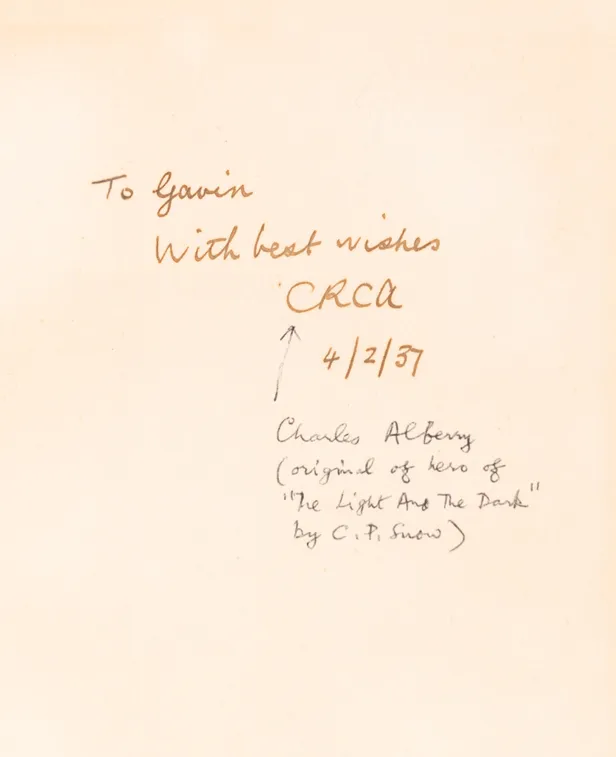 To Gavin
With best wishes
CRCA
4/2/37
Charles Alberry
(original of hero of
"The Light And The Dark"
by C. P. Snow)